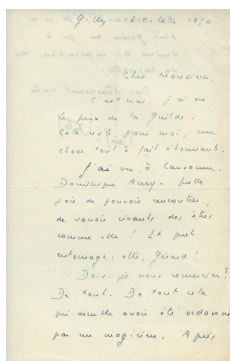 Gilly, octobre 1950
Cher Monsieur,
C'est vrai, j'ai eu
le prix de la Guilde.
Cela reste, pour moi, une
chose tout à fait étonnante.
J'ai vu, à Lausanne,
Dominique Aury. Quelle
joie de pouvoir rencontrer,
de savoir vivants, des êtres
comme elle ! Et quel
entourage : elle, Girard !
Dois-je vous remercier ?
De tout. De tout cela
qui semble avoir été ordonné
par un magicien. Après